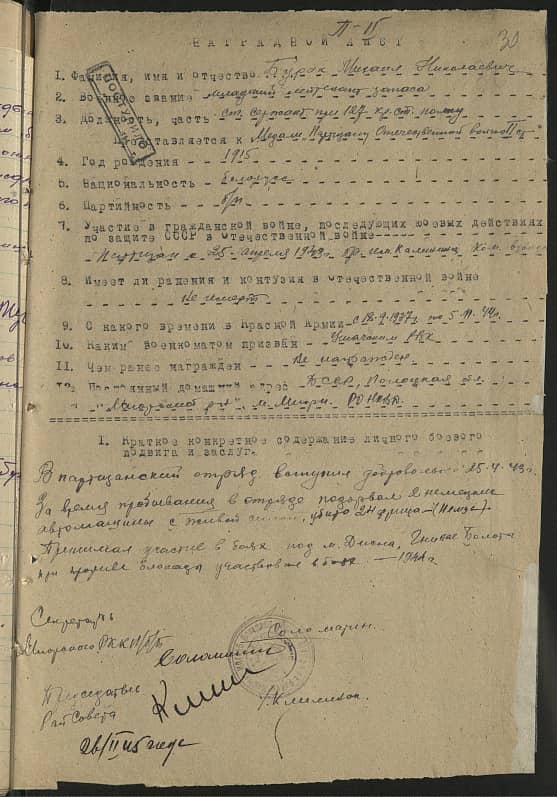 П-й
30
НАГРАДНОЙ ЛИСТ
1. Фамилия, имя и отчество Михаил Николаевич
2. Военное звание младший лейтенант запаса
3. Должность, часть ст. сержант при полку
Представляется к Медали Партизану Отечественной войны II ст
4. Год рождения 1915
5. Национальность белорус
6. Партийность б/п
7. Участие в гражданской войне, последующих боевых действиях
по защите СССР в отечественной войне
Партизан с 25 апреля 1943г. Калинина Ком.
8. Имеет ли ранения и контузия в отечественной войне
Не имеет
9. С какого времени в Красной Армии с по
10. Каким военкоматом призван РВК
11. Чем ранее награжден Не награжден
12. Постоянный домашний адрес БССР, Полоцкая обл.
р-н, м. Миоры.
1. Краткое конкретное содержание личного боевого
подвига и заслуг.
В партизанский отряд вступил добровольно 25.4.43г.
За время пребывания в отряде подорвал 2 немецкие
автомашины с живой силой, убито 24 фрица
Принимал участие в боях под м. Дисна,
при прорыве блокады участвовал в боях 1944г.
Секретарь
Миорского РК КП/б/Б
Соломатин.
Председатель
РайСовета
26/II 45 года